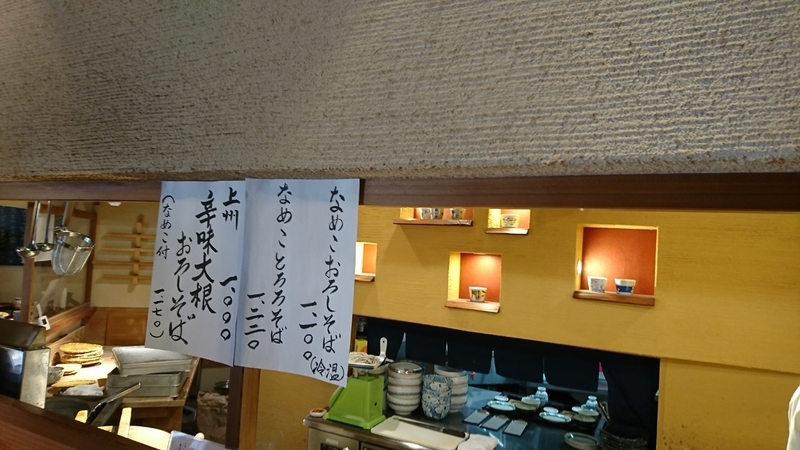 なめこおろしそば
一、一〇〇
(冷温)
なめことろろそば
一、二二〇
上州
辛味大根
おろしそば
一、〇〇〇
(なめこ付
一、一七〇)